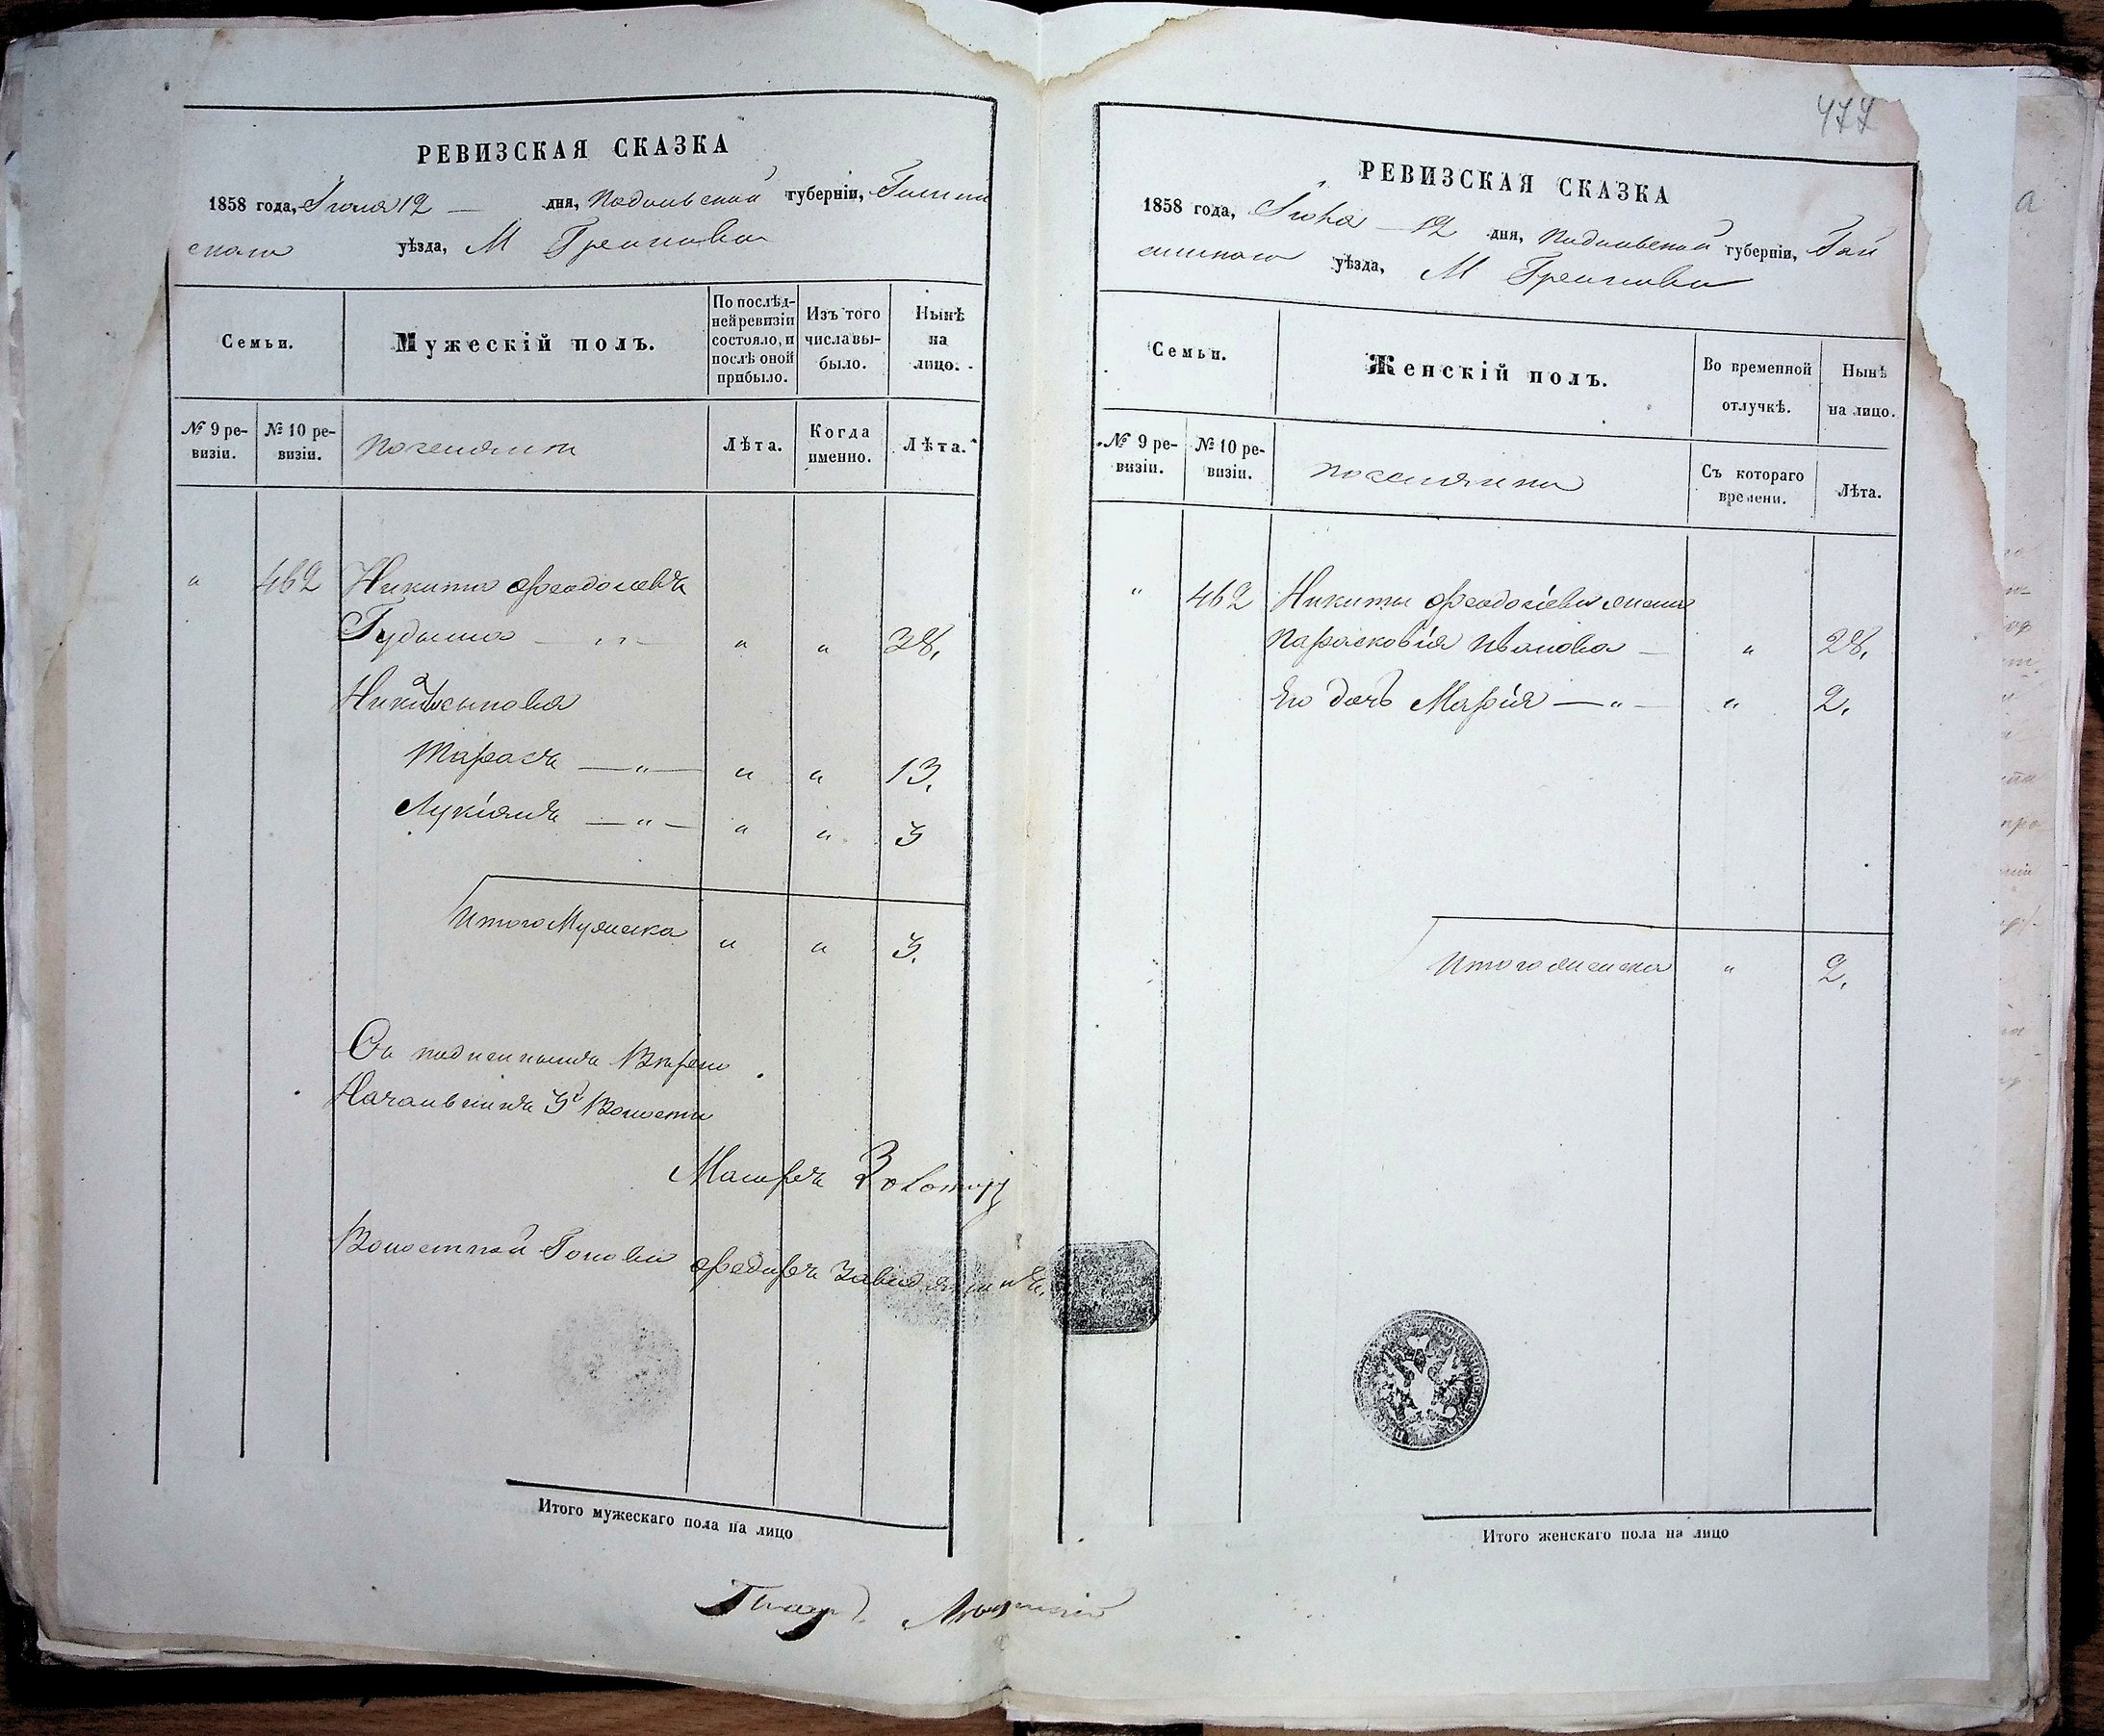 РЕВИЗСКАЯ СКАЗКА
1858 года, Июня 12 — дня, Подольской губерніи, Гайси
скаго уѣзда, М
Семьи.
Мужескій полъ.
По послѣд-
ней ревизіи
состояло, и
послѣ оной
прибыло.
Изъ того
числа вы-
было.
Нынѣ
на
лицо.
№ 9 ре-
визіи.
№ 10 ре-
визіи.
поселянъ
Лѣта.
Когда
именно.
Лѣта.
" 462 Никита Феодосіевъ
— " — " " 38,
сыновья
Тарасъ — " — " " 13,
Лукіянъ — " — " " 3
Итого Мужеска " " 3.
Начальникъ 3й Волости
Волостной Голова
Итого мужескаго пола на лицо
477
РЕВИЗСКАЯ СКАЗКА
1858 года, Іюня — 12 дня, Подольской губерніи, Гай
синскаго уѣзда, М
Семьи.
Женскій полъ.
Во временной
отлучкѣ.
Нынѣ
на лицо.
№ 9 ре-
визіи.
№ 10 ре-
визіи.
поселянъ
Съ котораго
времени.
Лѣта.
" 462 Никиты Феодосіева жена
Парасковія Иванова — " 28,
Его дочь Марія — " — " 2,
Итого женска " 2,
Итого женскаго пола на лицо